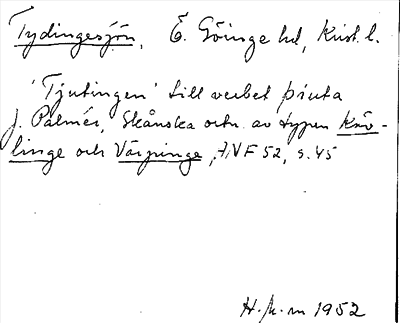 Tydingesjön, Ö. Göinge hd, Krist. l.
'Tjutingen' till verbet þiuta
J. Palmér, Skånska ortn. av typen Käv-
linge och Värpinge, ANF 52, s. 45
H. k-m 1952